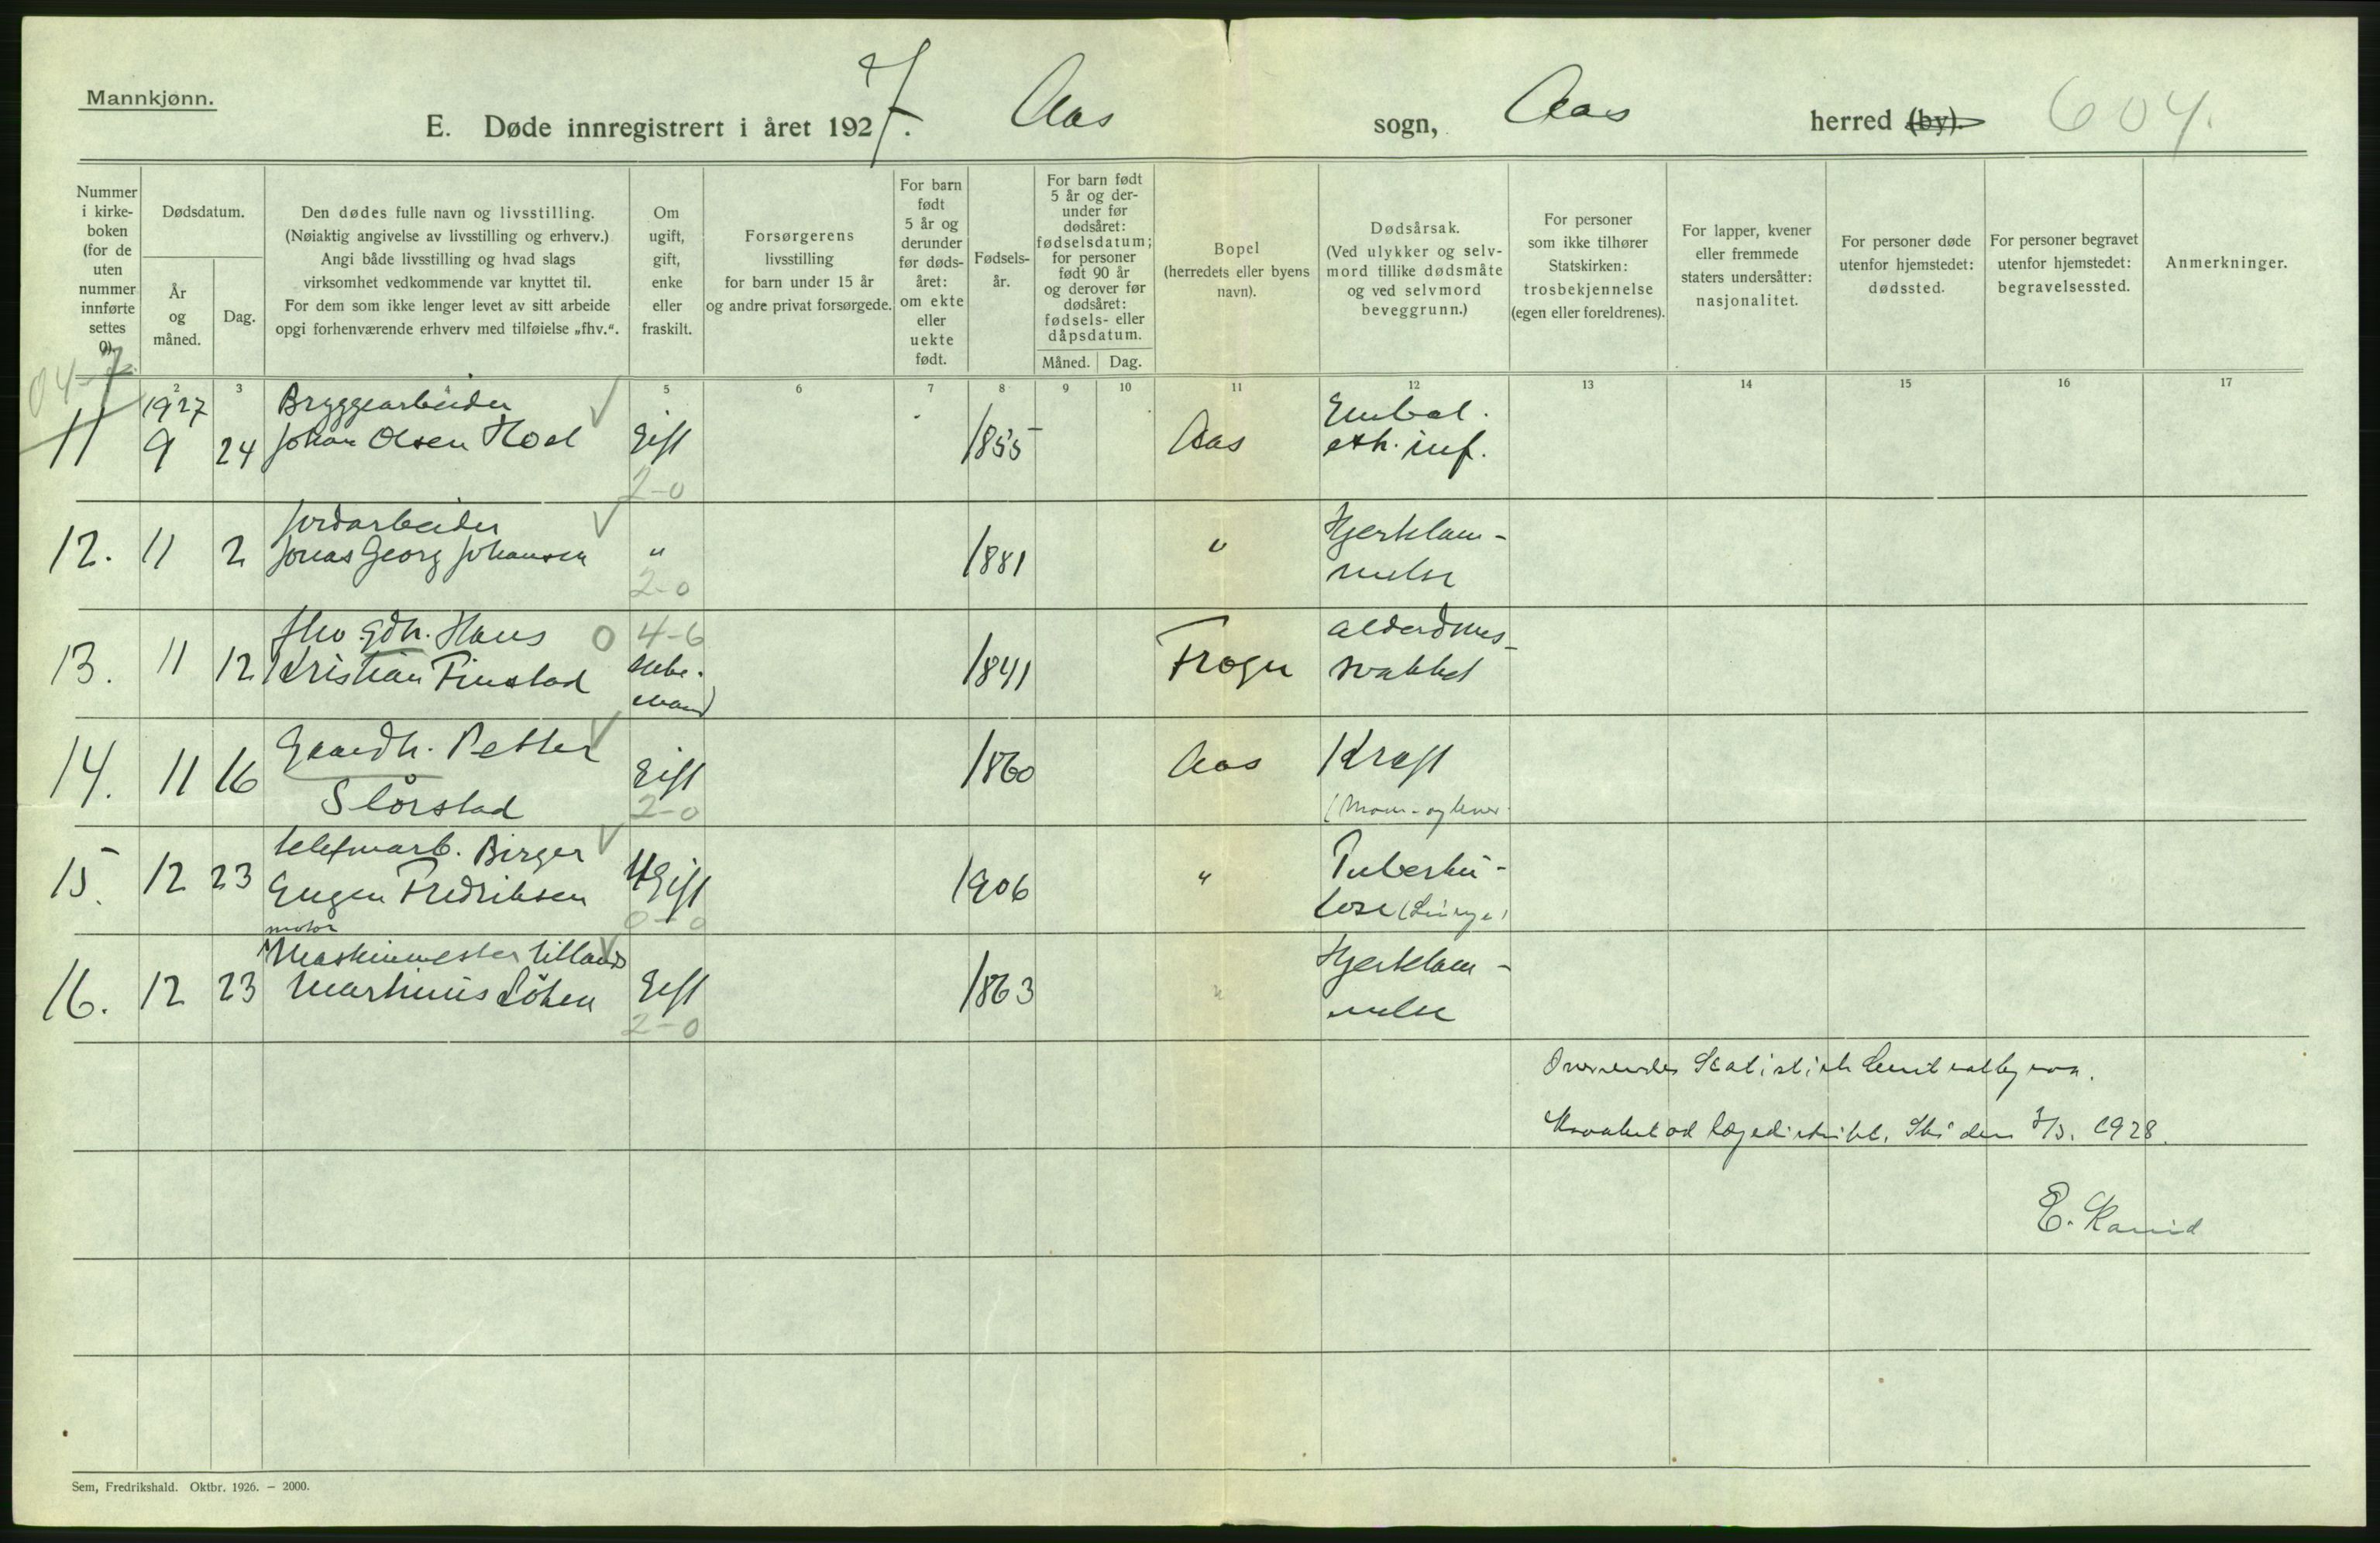 Mannkjønn.
E. Døde innregistrert i året 1927. Aas sogn, Aas herred (by). 604.
Nummer i kirke- boken (for de uten nummer innførte settes 0).
Dødsdatum.
År og måned.
Dag.
Den dødes fulle navn og livsstilling.
(Nøiaktig angivelse av livsstilling og erhverv.)
Angi både livsstilling og hvad slags
virksomhet vedkommende var knyttet til.
For dem som ikke lenger levet av sitt arbeide
opgi forhenværende erhverv med tilføielse „fhv.“.
Om ugift, gift, enke eller fraskilt.
Forsørgerens
livsstilling
for barn under 15 år
og andre privat forsørgede.
For barn født 5 år og derunder før døds- året: om ekte eller uekte født.
Fødsels- år.
For barn født 5 år og der- under før dødsåret: fødselsdatum; for personer født 90 år og derover før dødsåret: fødsels- eller dåpsdatum.
Måned. Dag.
Bopel
(herredets eller byens
navn).
Dødsårsak.
(Ved ulykker og selv-
mord tillike dødsmåte
og ved selvmord
beveggrunn.)
For personer
som ikke tilhører
Statskirken:
trosbekjennelse
(egen eller foreldrenes).
For lapper, kvener
eller fremmede
staters undersåtter:
nasjonalitet.
For personer døde
utenfor hjemstedet:
dødssted.
For personer begravet
utenfor hjemstedet:
begravelsessted.
Anmerkninger.
04-7
2 3 4 5 6 7 8 9 10 11 12 13 14 15 16 17
1927 Bryggearbeider Embol.
11 9 24 Johan Olsen Hoel Gift 1855 Aas inf.
2-0
Jordarbeider Hjerklam-
12. 11 2 Jonas Georg Johansen " 1881 " melse
2-0
fhv. gdr. Hans 0 4-6 alderdoms-
13. 11 12 Kristian Finstad enke- 1841 Frogn svakhet
mand
Gaardbr. Petter Kræft
14. 11 16 Slörstad Gift 1860 Aas (Mave- og lever
2-0
telefonarb. Birger Tuberku-
15. 12 23 Eugen Fredriksen Gift 1906 " lose (Lunge)
0-0
motor
Maskinmester Hjerklam-
16. 12 23 Martinus Löken Gift 1863 " melse
2-0
Oversendes Statistisk Sentralbyraa.
Kraakstad lægedistrikt, Ski den 1928.
E.
Sem, Fredrikshald. Oktbr. 1926. — 2000.